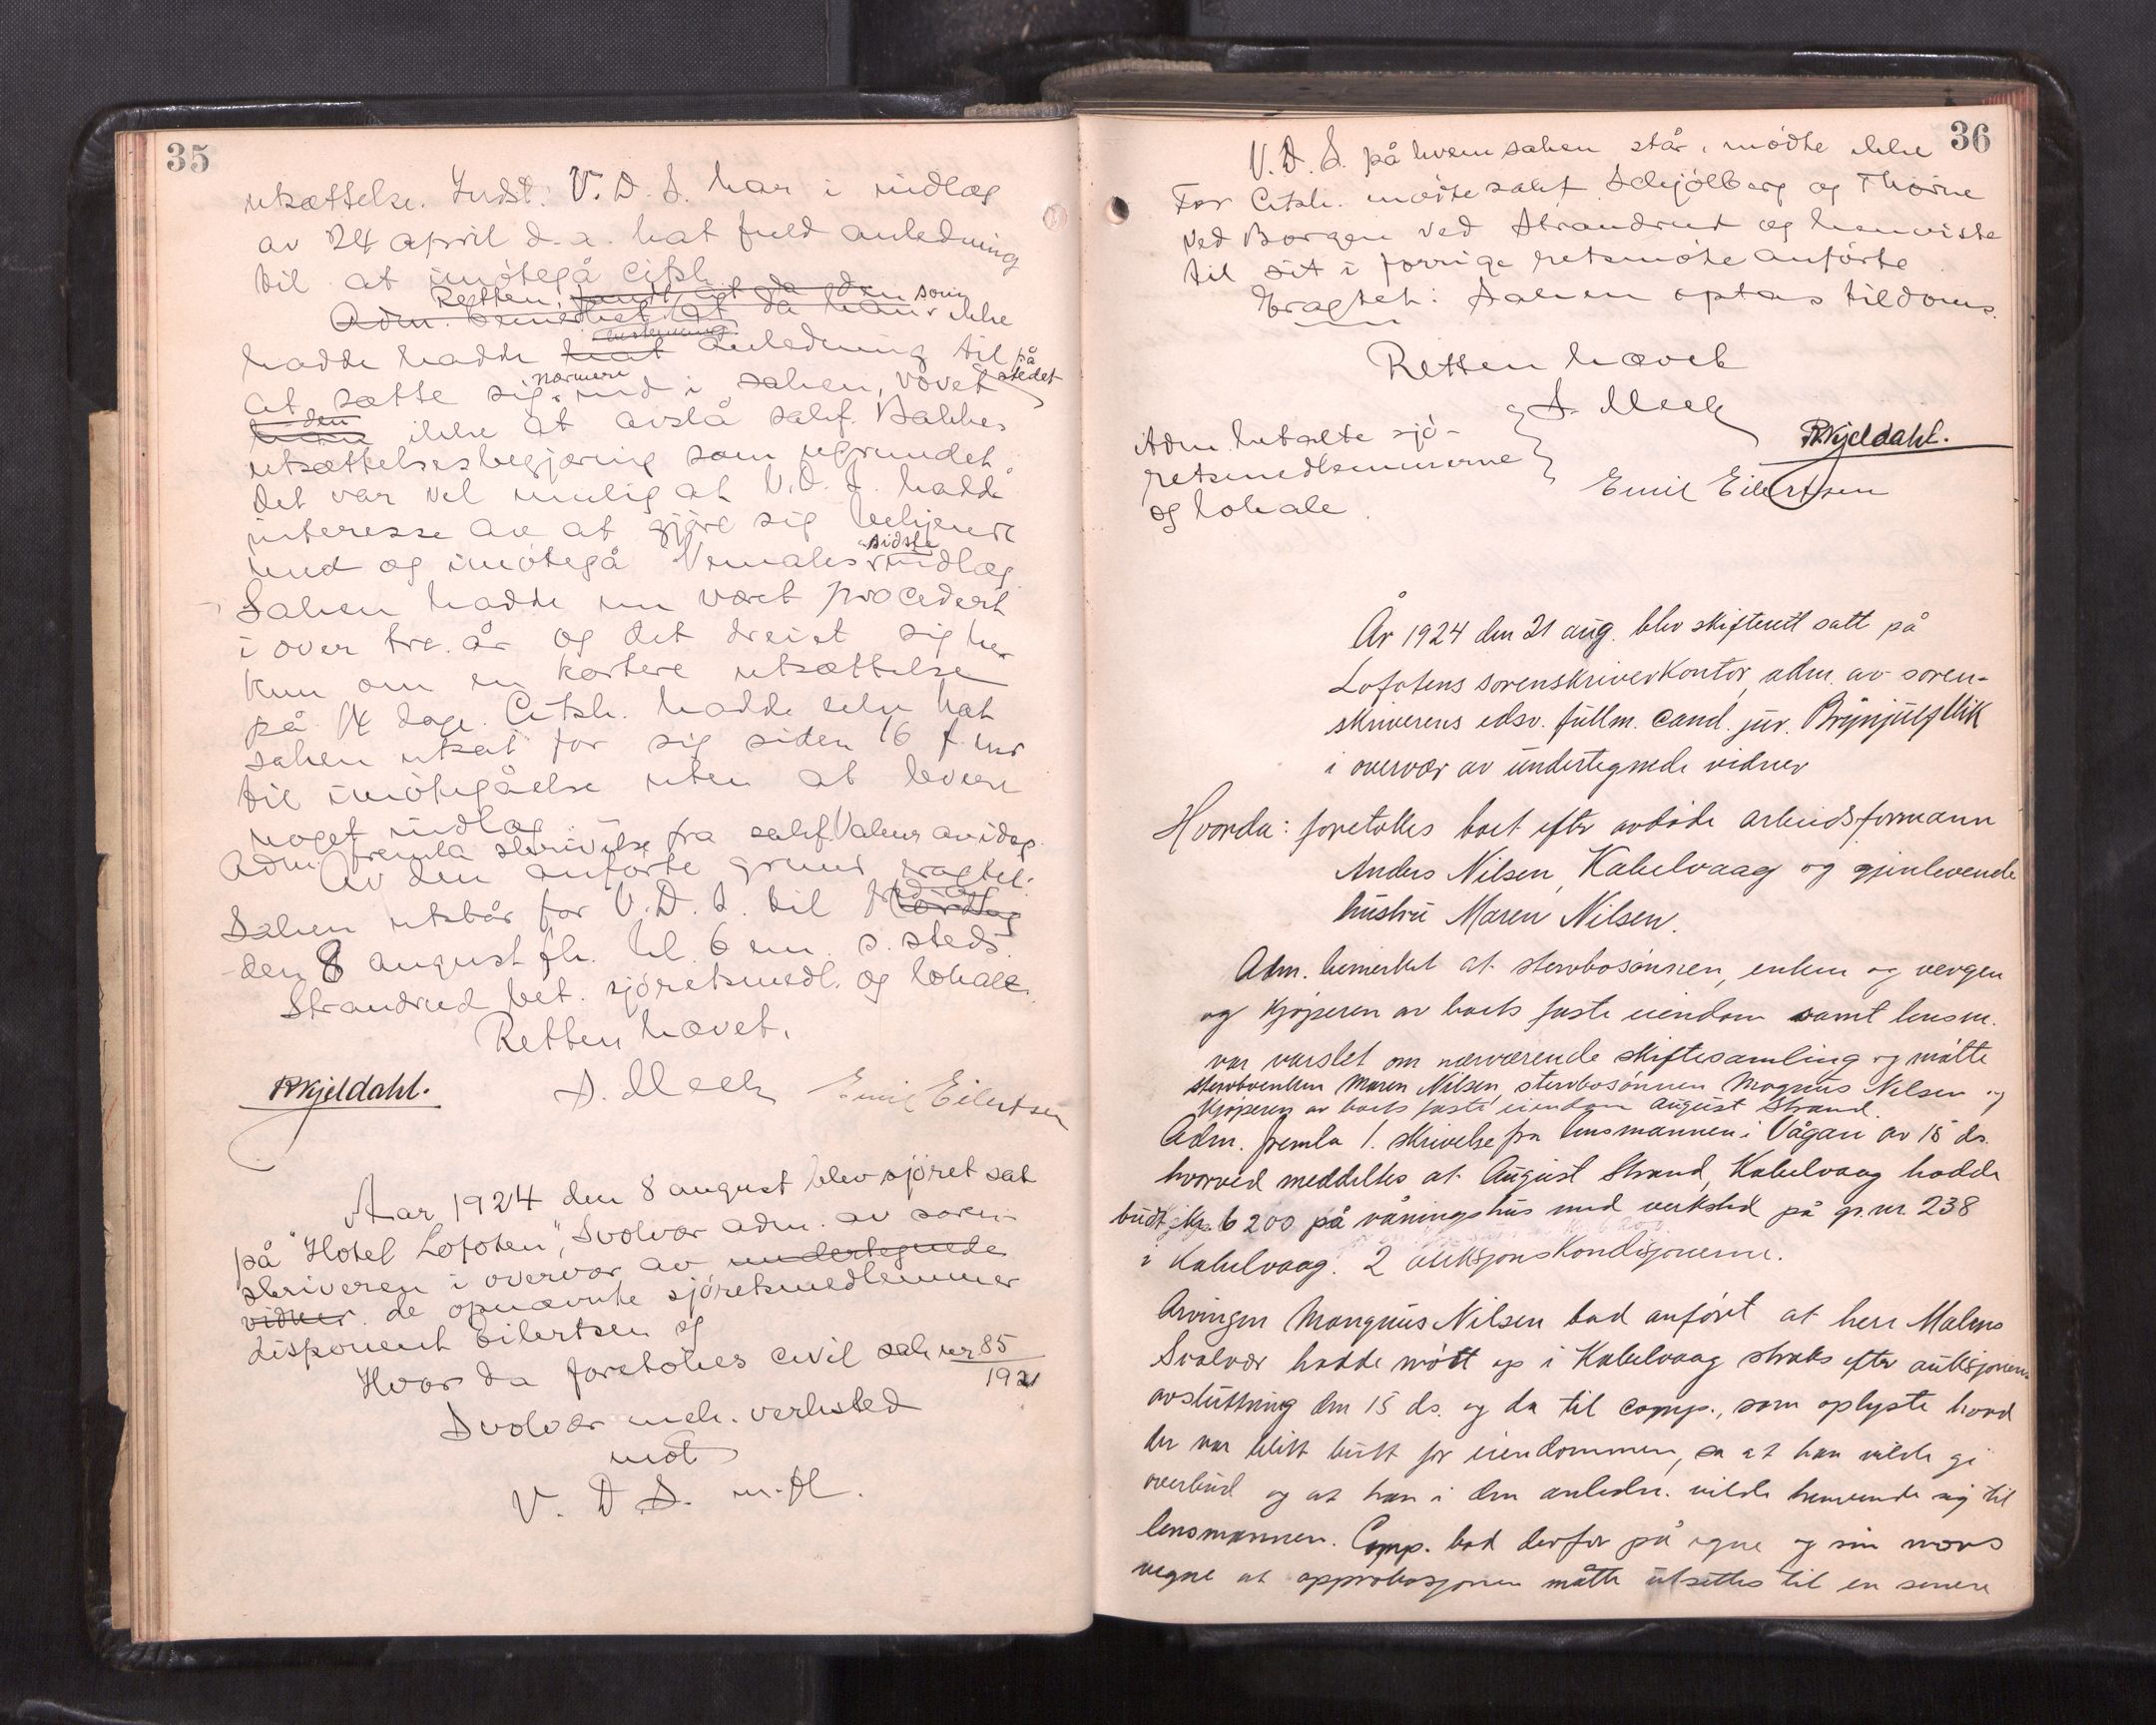 35
utsættelse. Indst. V. D. S. har i indlæg
av 24 april d.a. hat fuld anledning
til at imøtegå citsh.
Retten, fandt at da den som
Adm. bemerket at da han ikke
hadde hadde hat anledning til på
at sætte sig nærmere ind i saken, vovet stedet
den ikke at avslå sakf. Bakkes
utsættelsesbegjæring som ugrundet.
Det var vel mulig at V.D.S. hadde
interesse av at gjøre sig bekjendt
med og imøtegå sidste indlæg.
Saken hadde nu været procedert
i over tre år og det dreiet sig her
kun om en kortere utsættelse
på 14 dage. Citsh. hadde selv hat
saken utsat for sig siden 16 f. mr
til imøtegåelse uten at levere
noget indlæg
Adm. fremla skrivelse fra sakf. Valeur av idag.
Av den anførte grund eragtet:
Saken utstår for V.D.S. til fredag
den 8 august fk. kl. 6 em. s. steds.
Strandrud bet. sjøretsmedl. og lokale.
Retten hævet.
RKjeldahl. A. Meek Emil Eilertsen
Aar 1924 den 8 august blev sjøret sat
på "Hotel Lofoten", Svolvær adm. av soren-
skriveren i overvær av undertegnede
vidner de opnævnte sjøretsmedlemmer
disponent Eilertsen og
Hvor da foretokes civil sak nr 85
1921
Svolvær mek. verksted
mot
V. D. S. m. fl.
36
V. D. S. på hvem saken står, mødte ikke
For Citsh. mødte sakf. Schjølberg og Thorne
ved Borgen ved Strandrud og henviste
til sit i forrige retsmøte anførte
Eragtet: Saken optas til doms.
Retten hævet
A. Meek
Adm. betalte sjø-
retsmedlemmerne
og lokale.
RKjeldahl.
Emil Eilertsen
År 1924 den 21 aug. blev skifterett satt på
Lofotens sorenskriverkontor, adm. av soren-
skriverens edsv. fullm. cand. jur. Brynjulf Mik
i overvær av undertegnede vidner
Hvorda: foretokes boet efter avdøde arbeidsformann
Anders Nilsen, Kabelvaag og gjenlevende
hustru Maren Nilsen.
Adm. bemerket at stervbosønnen, enken og vergen
og kjøperen av boets faste eiendom samt lensm.
var varslet om nærværende skiftesamling og møtte
stervboenken Maren Nilsen, stervbosønnen Magnus Nilsen og
kjøperen av boets faste eiendom August Strand.
Adm. fremla 1. skrivelse fra lensmannen i Vågan av 15 ds.
hvorved meddeltes at August Strand, Kabelvaag hadde
budt kr. 6 200 på våningshus med verksted på gr.nr. 238
i Kabelvaag. 2 auksjonskondisjonerne.
Arvingen Mangnus Nilsen bad anført at herr Malmo
Svolvær hadde møtt op i Kabelvaag straks efter auksjonens
avslutning den 15 ds. og da til comp., som oplyste hvad
der var blitt budt for eiendommen, sa at han vilde gi
overbud og at han i den anledn. vilde henvende sig til
lensmannen. Comp. bad derfor på egne og sin mors
vegne at approbasjonen måtte utsettes til en senere